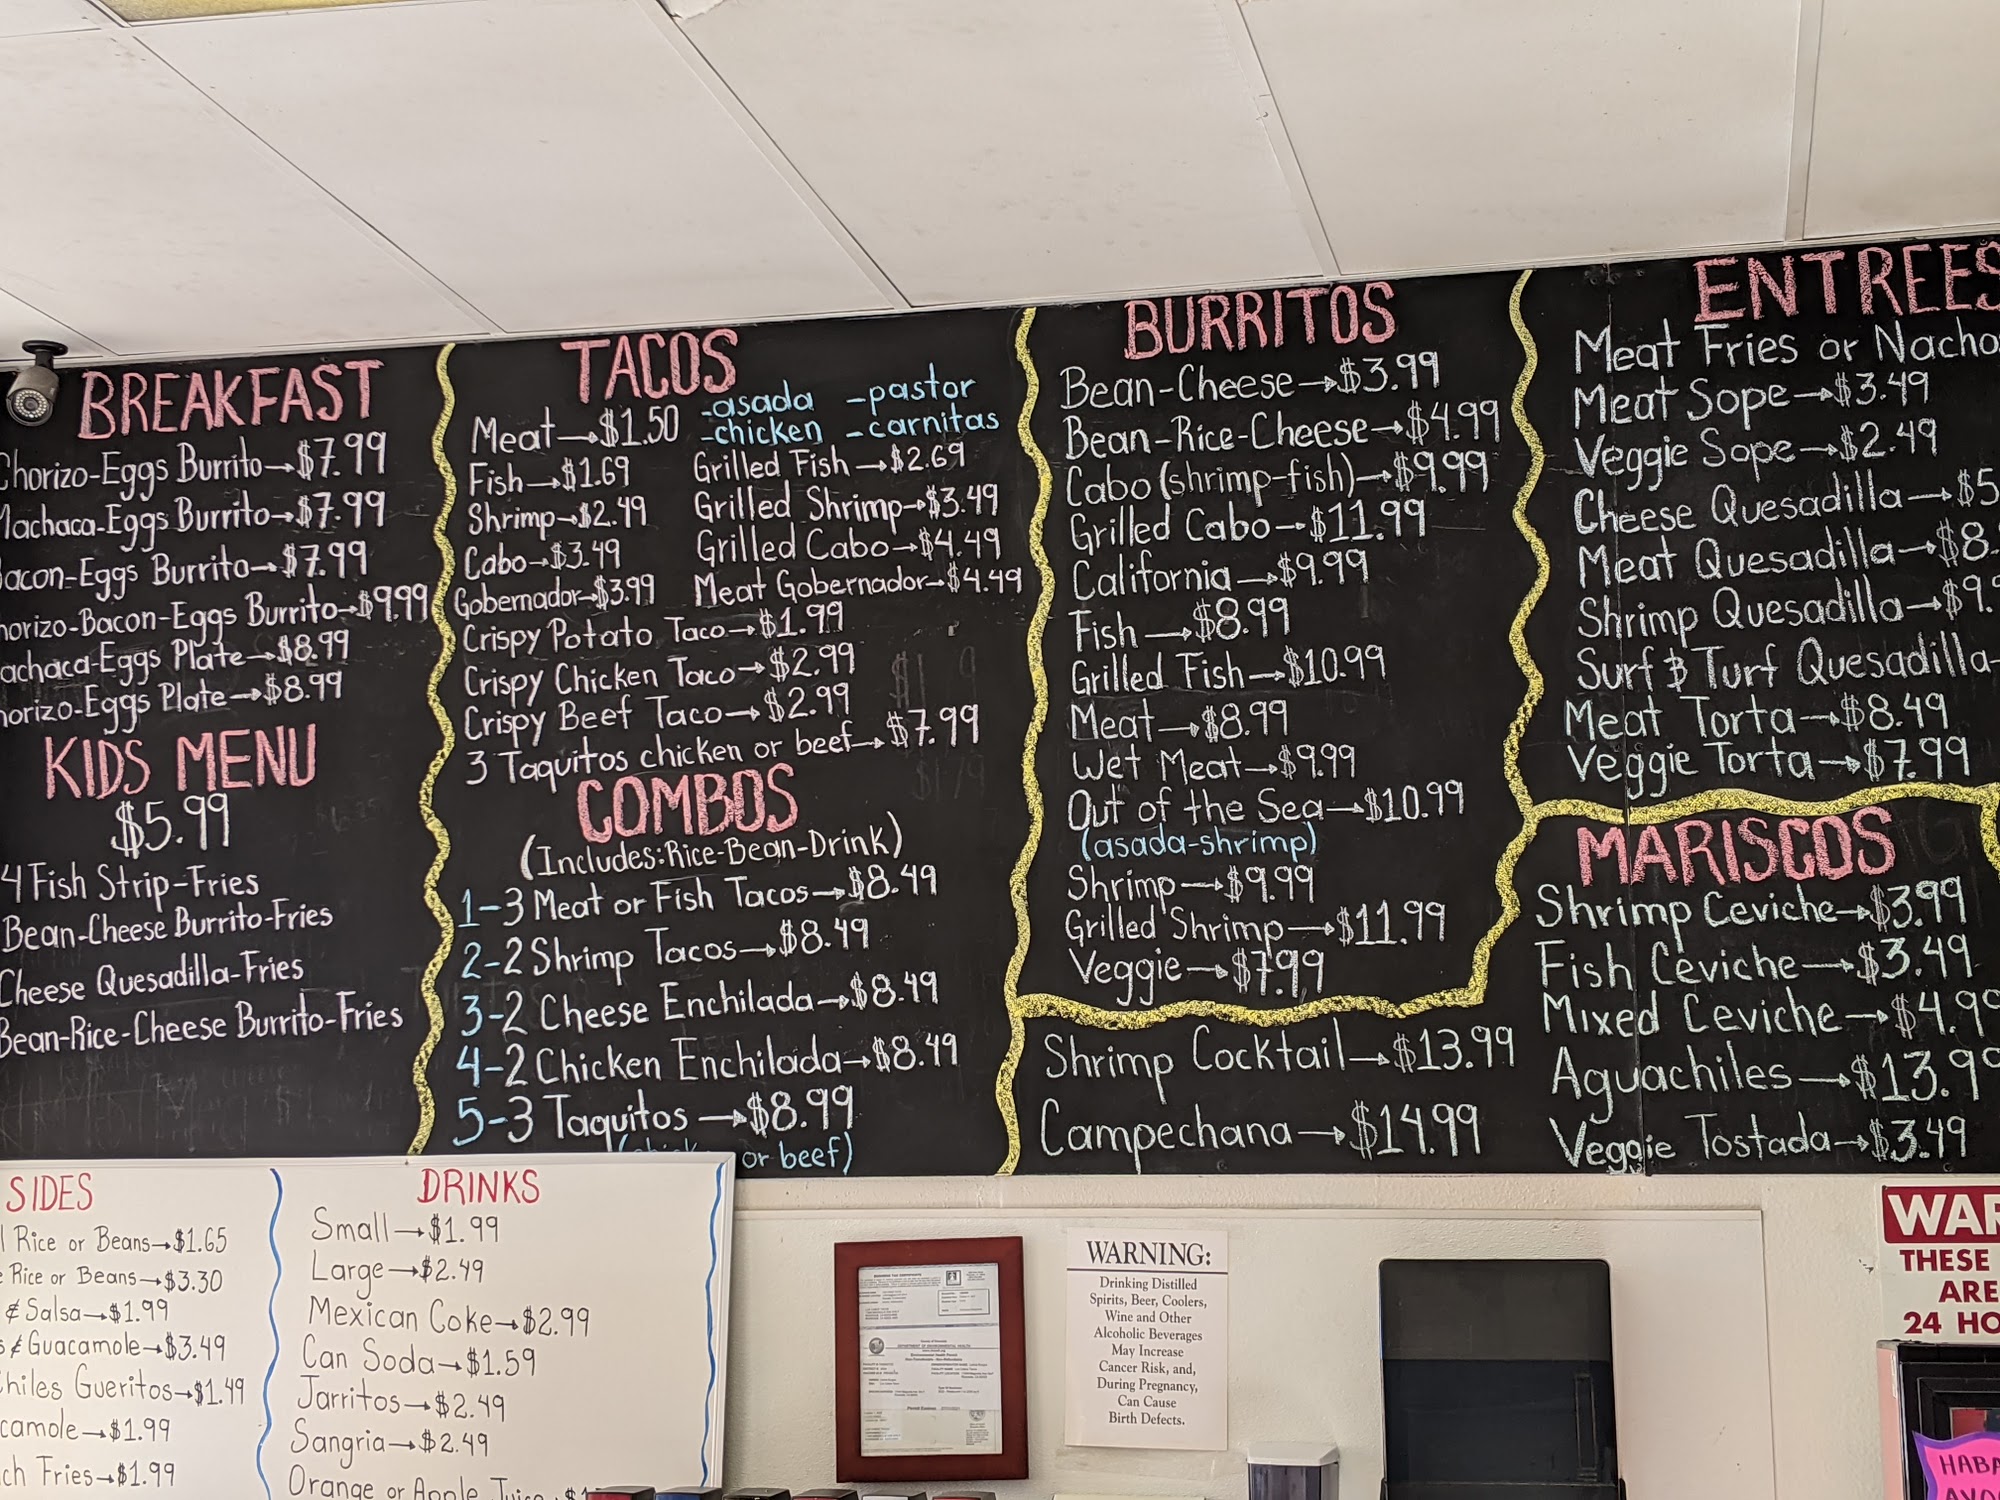 BREAKFAST
Chorizo-Eggs Burrito→$7.99
Machaca-Eggs Burrito→$7.99
Bacon-Eggs Burrito→$7.99
horizo-Bacon-Eggs Burrito→$9.99
achaca-Eggs Plate→$8.99
horizo-Eggs Plate→$8.99
KIDS MENU
$5.99
4 Fish Strip-Fries
Bean-Cheese Burrito-Fries
Cheese Quesadilla-Fries
Bean-Rice-Cheese Burrito-Fries
TACOS
Meat→$1.50 -asada -pastor
-chicken -carnitas
Fish→$1.69
Shrimp→$2.49
Cabo→$3.49
Gobernador→$3.99
Grilled Fish→$2.69
Grilled Shrimp→$3.49
Grilled Cabo→$4.49
Meat Gobernador→$4.49
Crispy Potato Taco→$1.99
Crispy Chicken Taco→$2.99
Crispy Beef Taco→$2.99
3 Taquitos chicken or beef→$7.99
COMBOS
(Includes:Rice-Bean-Drink)
1-3 Meat or Fish Tacos→$8.49
2-2 Shrimp Tacos→$8.49
3-2 Cheese Enchilada→$8.49
4-2 Chicken Enchilada→$8.49
5-3 Taquitos→$8.99
or beef)
BURRITOS
Bean-Cheese→$3.99
Bean-Rice-Cheese→$4.99
Cabo (shrimp-fish)→$9.99
Grilled Cabo→$11.99
California→$9.99
Fish→$8.99
Grilled Fish→$10.99
Meat→$8.99
Wet Meat→$9.99
Out of the Sea→$10.99
(asada-shrimp)
Shrimp→$9.99
Grilled Shrimp→$11.99
Veggie→$7.99
Shrimp Cocktail→$13.99
Campechana→$14.99
ENTREES
Meat Fries or Nacho
Meat Sope→$3.49
Veggie Sope→$2.49
Cheese Quesadilla→$5
Meat Quesadilla→$8.
Shrimp Quesadilla→$9.
Surf & Turf Quesadilla-
Meat Torta→$8.49
Veggie Torta→$7.99
MARISCOS
Shrimp Ceviche→$3.99
Fish Ceviche→$3.49
Mixed Ceviche→$4.99
Aguachiles→$13.99
Veggie Tostada→$3.49
SIDES
Rice or Beans→$1.65
Rice or Beans→$3.30
& Salsa→$1.99
& Guacamole→$3.49
hiles Gueritos→$1.49
camole→$1.99
ch Fries→$1.99
DRINKS
Small→$1.99
Large→$2.49
Mexican Coke→$2.99
Can Soda→$1.59
Jarritos→$2.49
Sangria→$2.49
Orange or Apple Juice
WARNING:
Drinking Distilled
Spirits, Beer, Coolers,
Wine and Other
Alcoholic Beverages
May Increase
Cancer Risk, and,
During Pregnancy,
Can Cause
Birth Defects.
WAR
THESE
ARE
24 HO
HABA